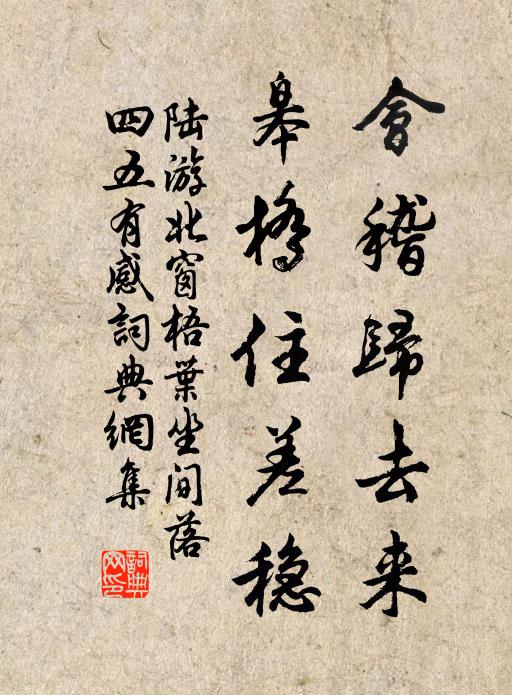 會稽歸去来
皋橋住差穏
陆游北窗梧葉坐间落
四五有感詞典網集
詞典
网印